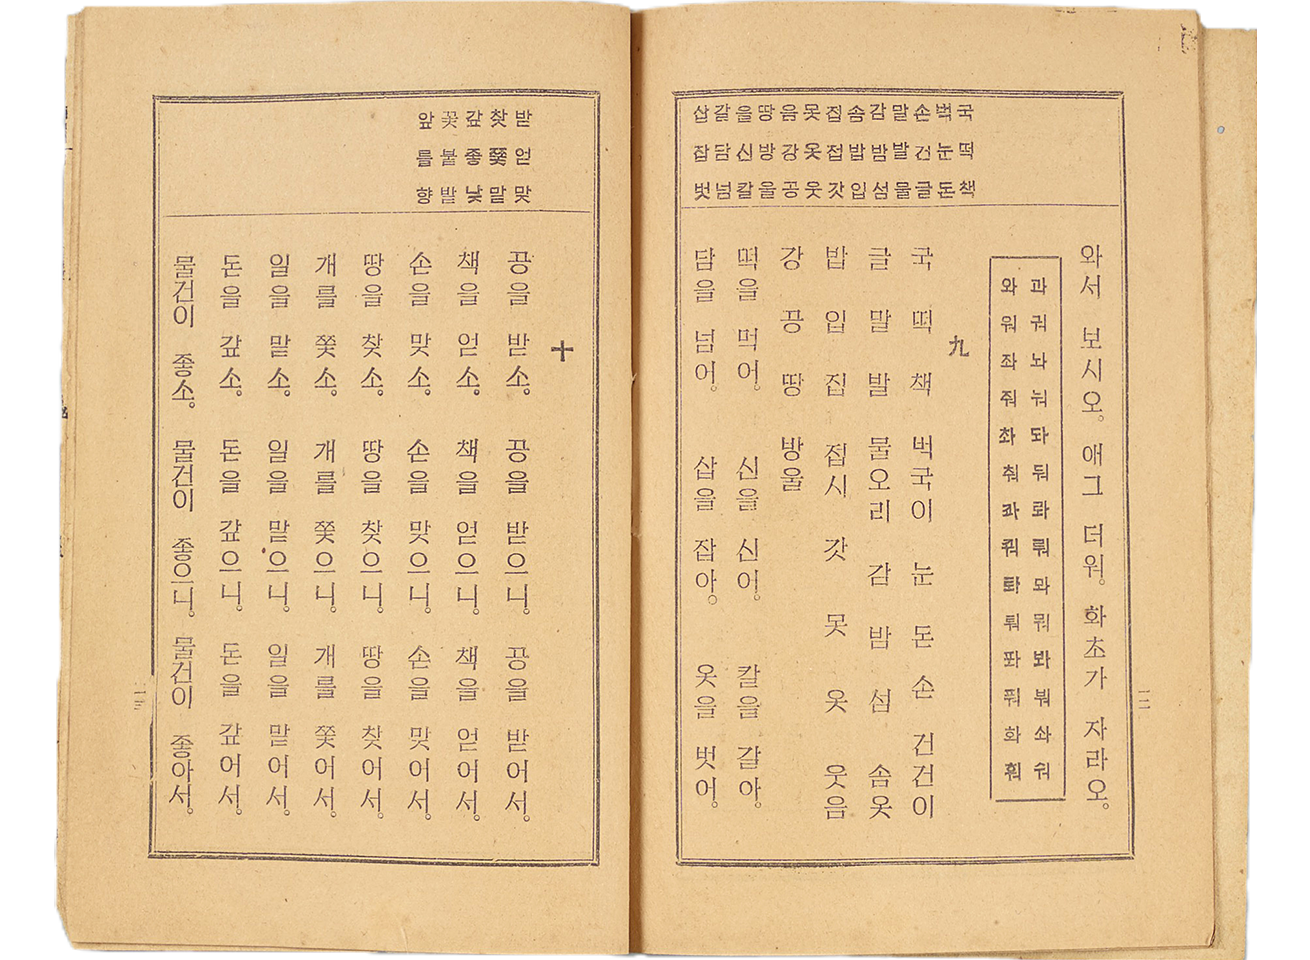 국떡책
벅눈돈
손건글
말발물
감밤섬
솜밥입
집접갓
못옷웃
음강공
땅방울
을신칼
갈담넘
삽잡벗
와서 보시오。 애그 더워。 화초가 자라오。
과 궈 놔 눠 돠 둬 롸 뤄 뫄 뭐 봐 붜 솨 숴
와 워 좌 줘 촤 춰 콰 쿼 톼 퉈 퐈 풔 화 훠
九
국 떡 책 벅국이 눈 돈 손 건건이
글 말 발 물오리 감 밤 섬 솜옷
밥 입 집 접시 갓 못 옷 웃음
강 공 땅 방울
떡을 먹어。 신을 신어。 칼을 갈아。
담을 넘어。 삽을 잡아。 옷을 벗어。
一二
받얻맞
찾쫓맡
갚좋낯
꽃붙밭
앞를향
十
공을 받소。 공을 받으니。 공을 받어서。
책을 얻소。 책을 얻으니。 책을 얻어서。
손을 맞소。 손을 맞으니。 손을 맞어서。
땅을 찾소。 땅을 찾으니。 땅을 찾어서。
개를 쫓소。 개를 쫓으니。 개를 쫓어서。
일을 맡소。 일을 맡으니。 일을 맡어서。
돈을 갚소。 돈을 갚으니。 돈을 갚어서。
물건이 좋소。 물건이 좋으니。 물건이 좋아서。
一三